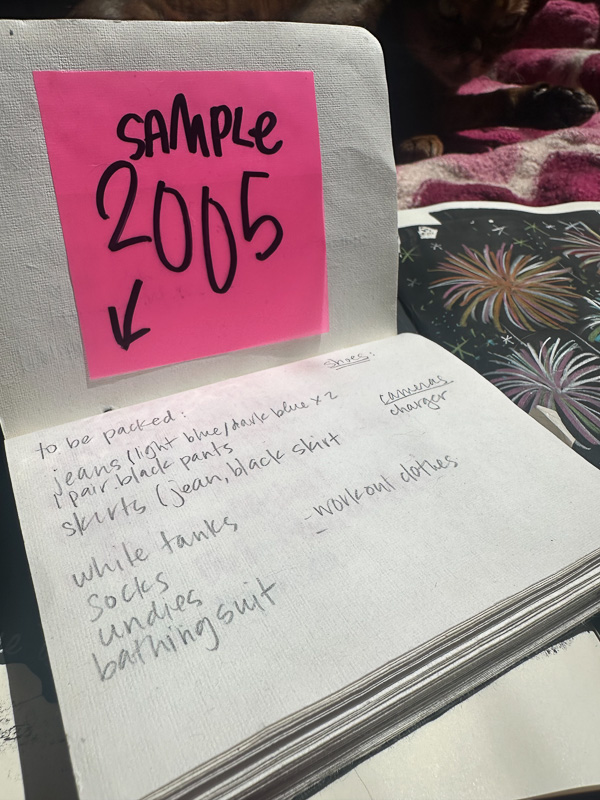 SAMPLE
2005
shoes:
to be packed:
jeans (light blue/dark blue x 2
1 pair black pants
skirts (jean, black skirt
cameras
charger
white tanks
- workout clothes
-
socks
undies
bathing suit